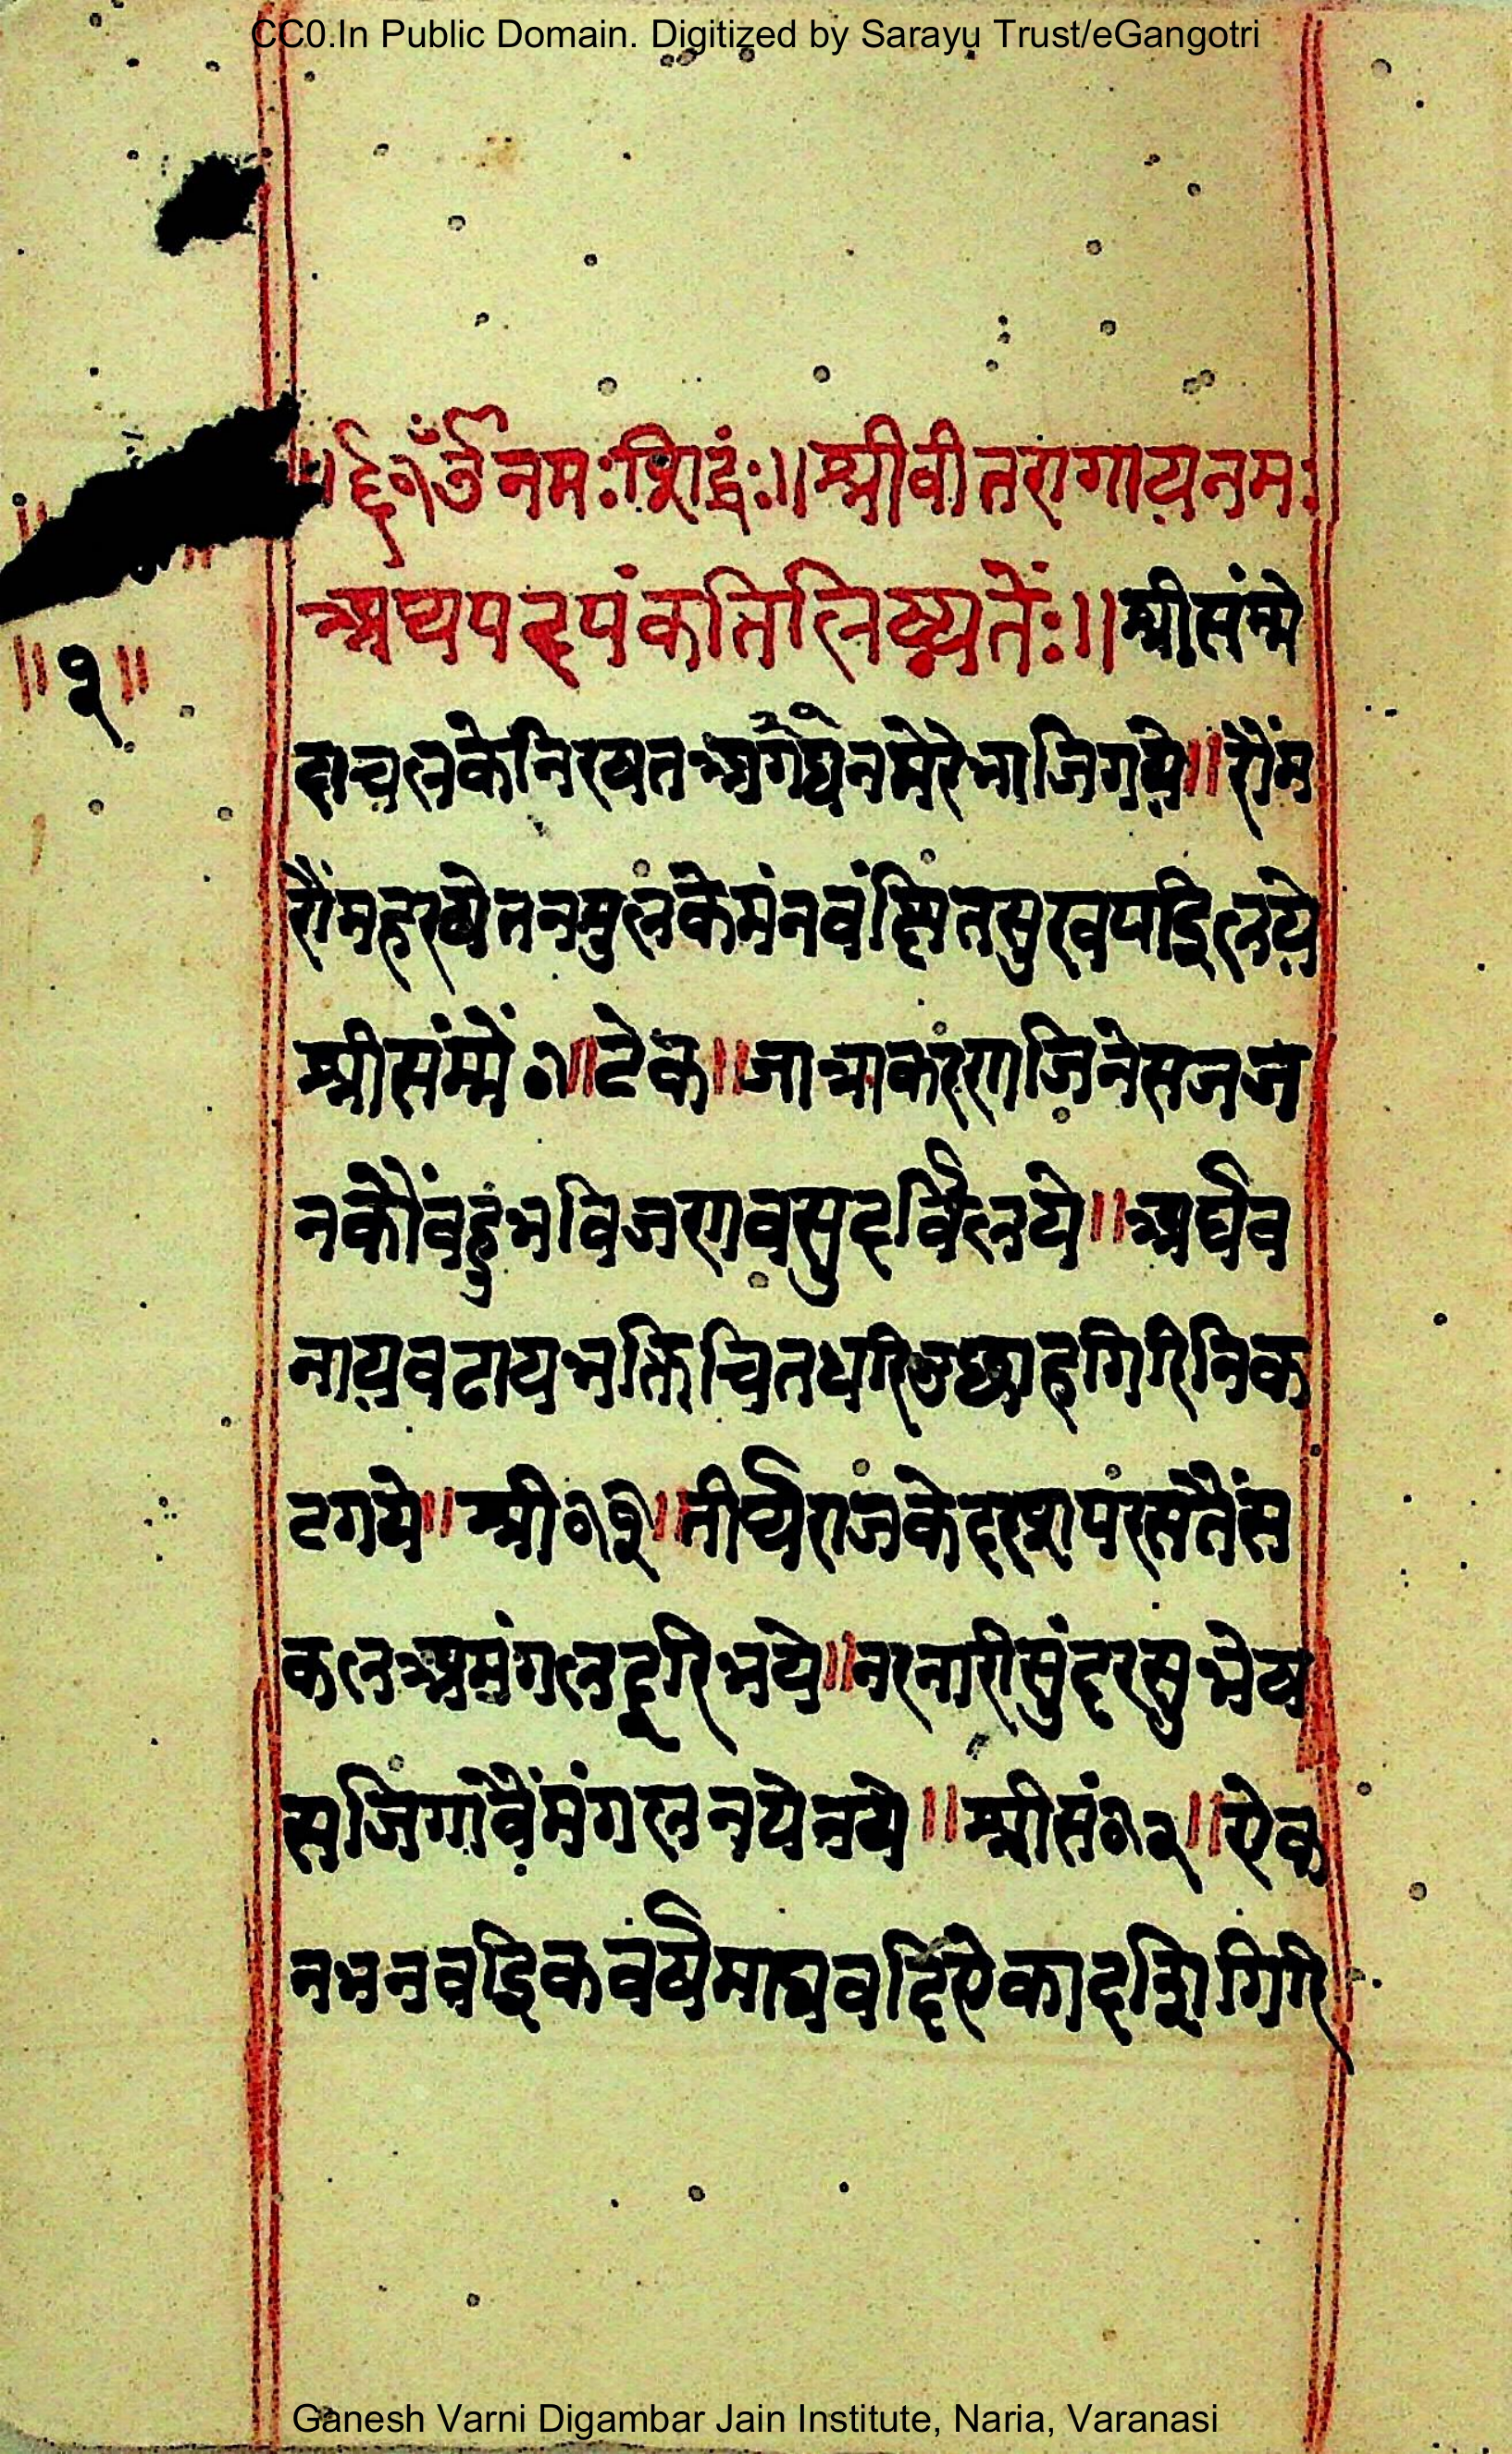 CC0.In Public Domain. Digitized by Sarayu Trust/eGangotri
॥६१ॐ नमः शिद्धंः॥ श्रीवीतरागायनमः
अथपदपंकतिलिष्यतेंः॥ श्रीसंम्मे
दाचलकेनिरषतअगेघनमेरेभाजिगये॥ रौंम
रौंमहरषेतनमुलंकेमंनवंछितसुखपाइलये
श्रीसंम्में०१॥ टेक॥ जात्राकरंणजिंनेसजज
नकौंवहुंभविजणवसुदर्विलये॥ अर्घव
नायवढायभक्तिचितधरिउछाहगिरिनिक
टगये॥ श्री०१२॥ तीर्थराजंकेदरशपंरसतैंस
कलअमंगलदूरिभये॥ नरनारीसुंदरसुभेष
सजिंगावैंमंगलनयेनये॥ श्रीसं०१२॥ ऐक
नभनवइिकवर्षमाघवदिऐकादशिगिरि
॥१॥
Ganesh Varni Digambar Jain Institute, Naria, Varanasi